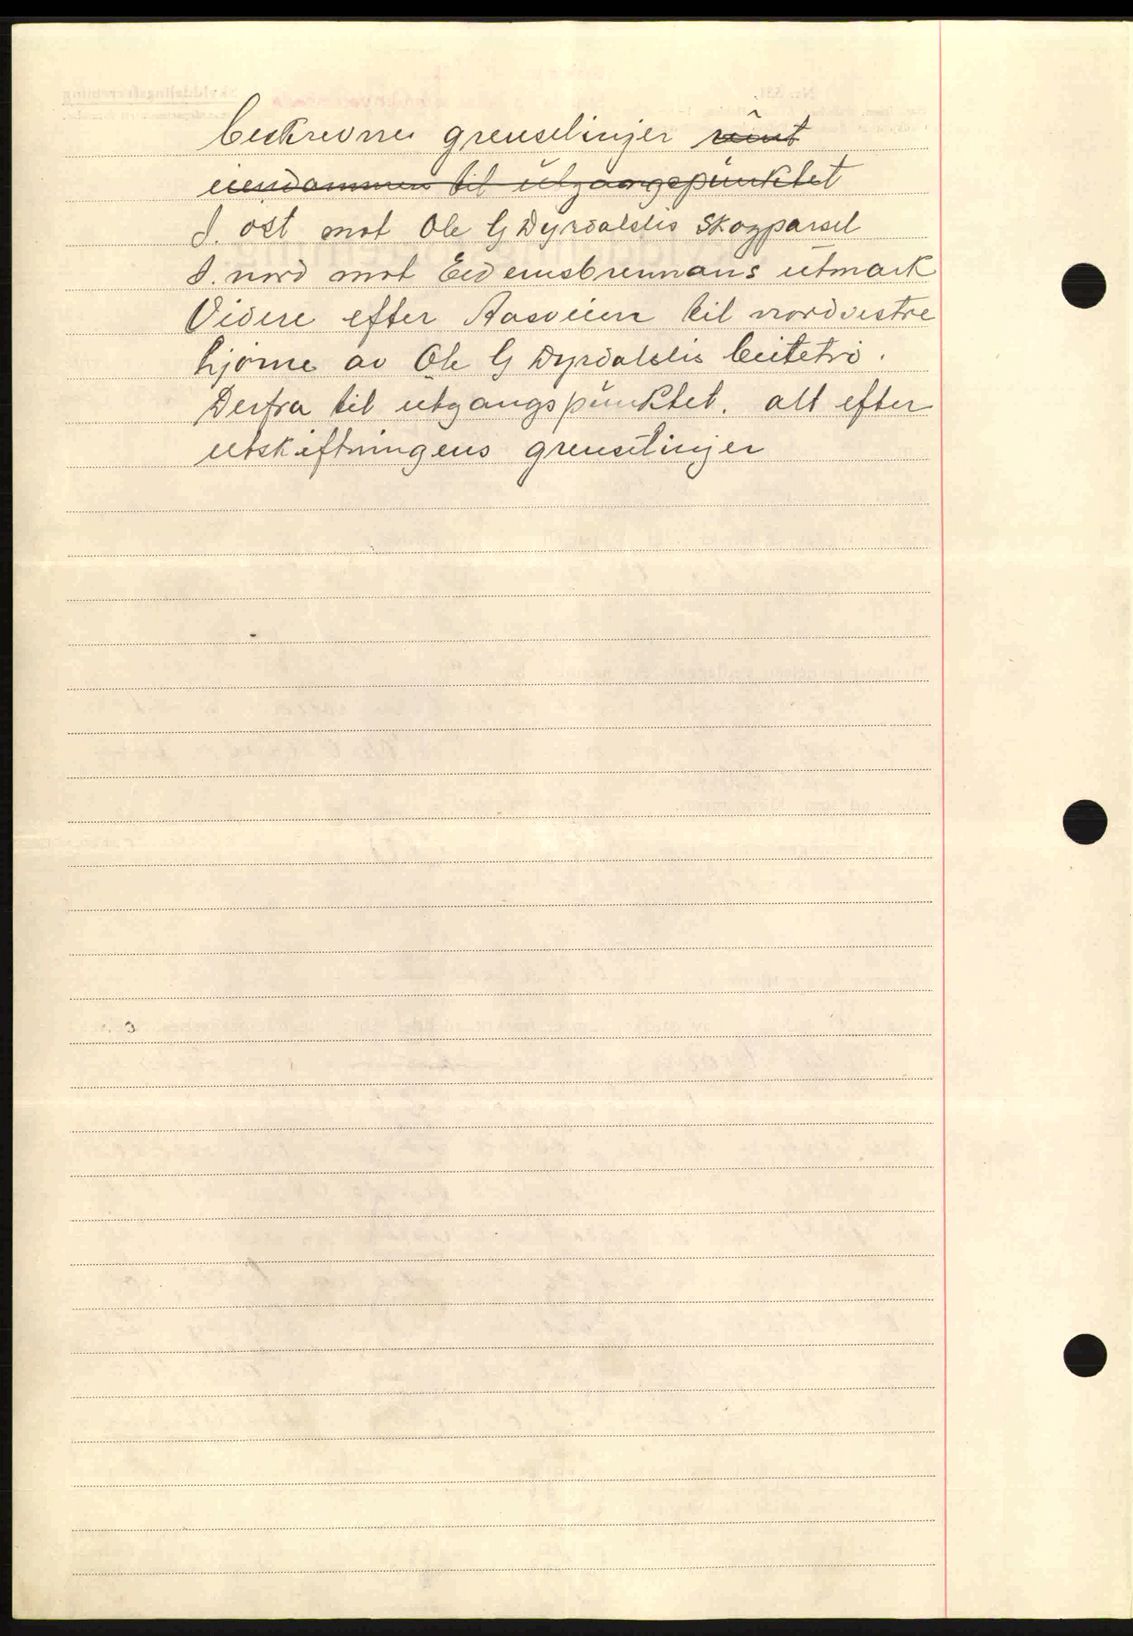 beskrevne grenselinjer rundt
eiendommen til utgangspunktet
I. øst mot Ole G Dyrdalslis Skogparsel
I. nord mot Eidemsbrennans utmark
Videre efter Aasveien til nordvestre
hjørne av Ole G Dyrdalslis beitetrø.
Derfra til utgangspunktet. alt efter
utskiftningens grenselinjer